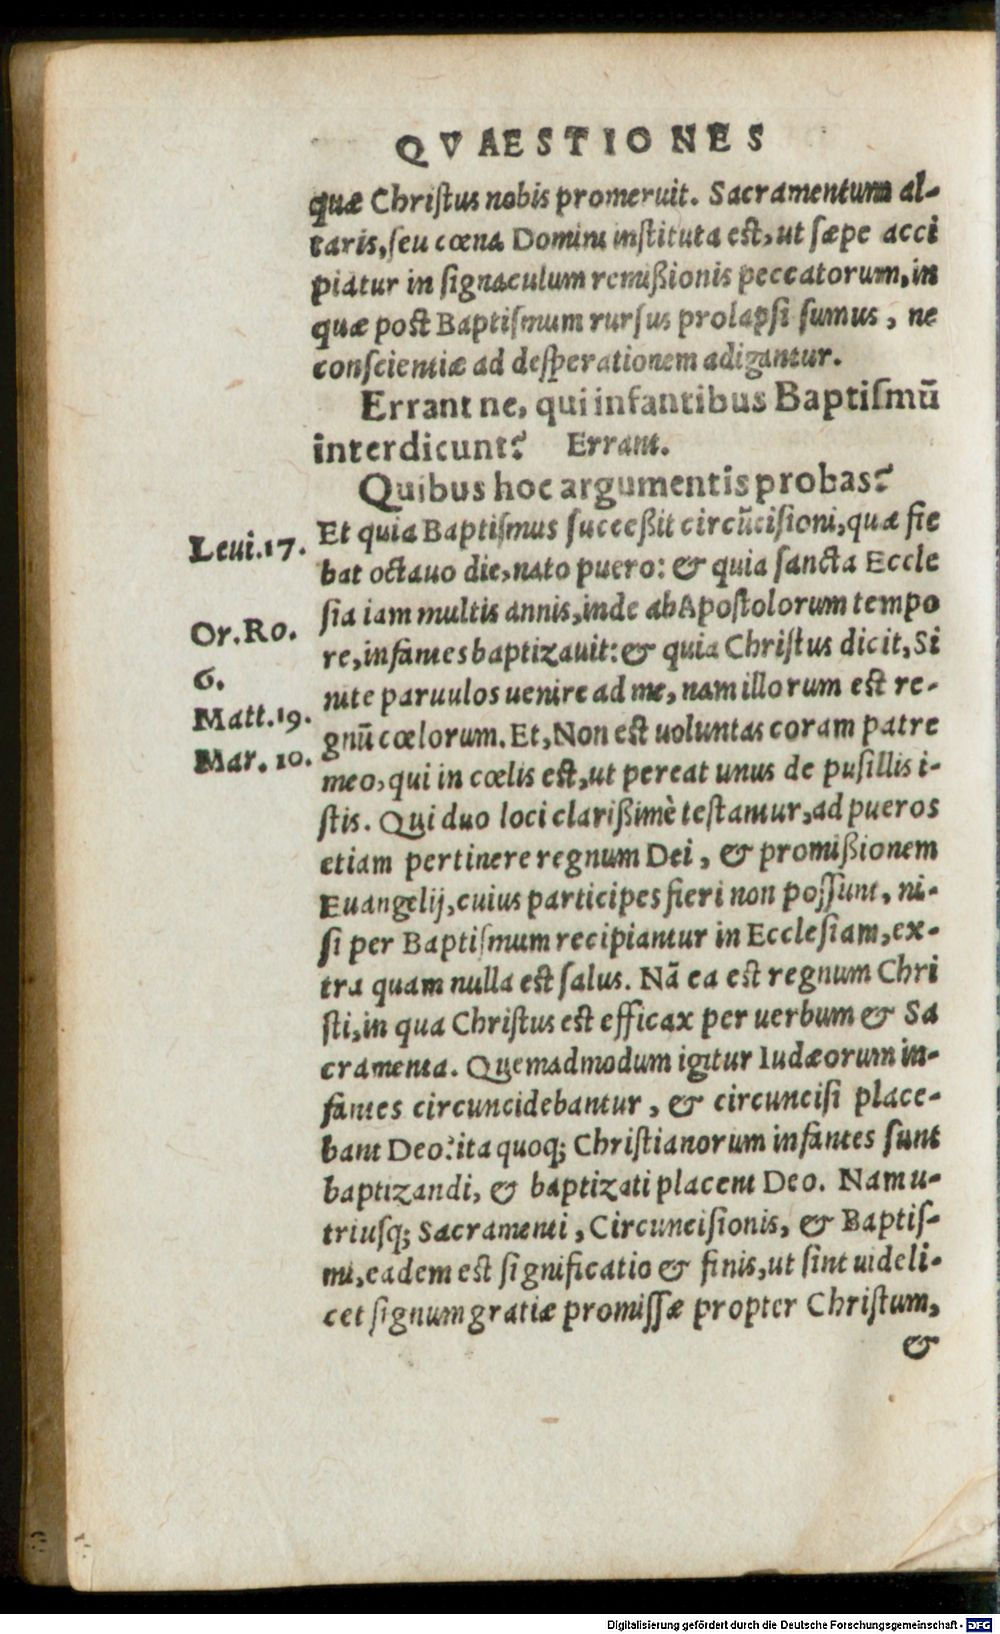 QVAESTIONES
quæ Chriſtus nobis promeruit. Sacramentum al-
taris, ſeu cœna Domini inſtituta eſt, ut ſæpe acci
piatur in ſignaculum remißionis peccatorum, in
quæ poſt Baptiſmum rurſus prolapſi ſumus, ne
conſcientiæ ad deſperationem adigantur.
Errant ne, qui infantibus Baptiſmũ
interdicunt? Errant.
Quibus hoc argumentis probas?
Leui.17.
Et quia Baptiſmus ſucceßit circũciſioni, quæ fie
bat octauo die, nato puero: & quia ſancta Eccle
Or.Ro.
ſia iam multis annis, inde ab Apoſtolorum tempo
6.
re, infantes baptizauit: & quia Chriſtus dicit, Si
Matt.19.
nite paruulos uenire ad me, nam illorum eſt re-
Mar. 10.
gnũ cœlorum. Et, Non eſt uoluntas coram patre
meo, qui in cœlis eſt, ut pereat unus de puſillis i-
ſtis. Qui duo loci clarißimè teſtantur, ad pueros
etiam pertinere regnum Dei, & promißionem
Euangelij, cuius participes fieri non poſſunt, ni-
ſi per Baptiſmum recipiantur in Eccleſiam, ex-
tra quam nulla eſt ſalus. Nã ea eſt regnum Chri
ſti, in qua Chriſtus eſt efficax per uerbum & Sa
cramenta. Quemadmodum igitur Iudæorum in-
fantes circuncidebantur, & circunciſi place-
bant Deo: ita quoq; Chriſtianorum infantes ſunt
baptizandi, & baptizati placent Deo. Nam u-
triuſq; Sacramenti, Circunciſionis, & Baptiſ-
mi, eadem eſt ſignificatio & finis, ut ſint uideli-
cet ſignum gratiæ promiſſæ propter Chriſtum,
&
Digitalisierung gefördert durch die Deutsche Forschungsgemeinschaft - DFG